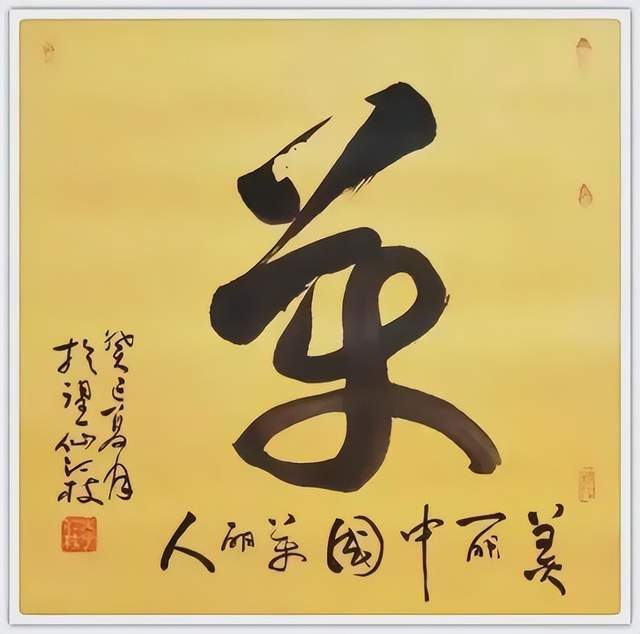 美
美丽中國美丽人
癸巳夏月
於 仙